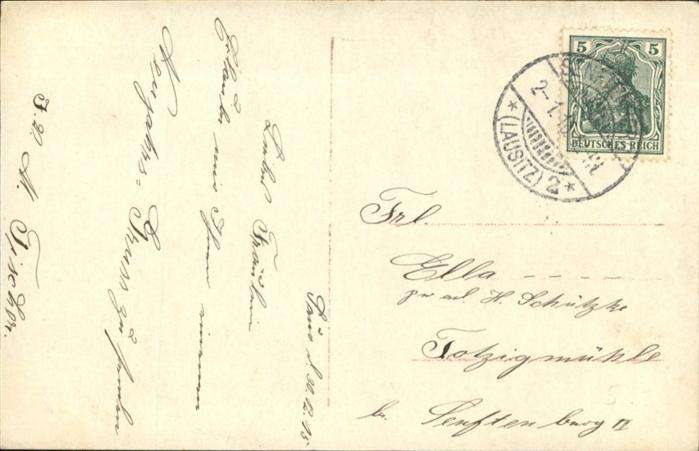 5 5
DEUTSCHES REICH
2.1.
* (LAUSITZ) 2 *
Frl.
Ella - - - -
H. Schützke
Totzigmühle
b. Senftenburg II
d. 30.12.13.
Liebes Fräulein
Erlaube mir Ihnen einen
Neujahrs-Gruss zu senden
A. Fischer.